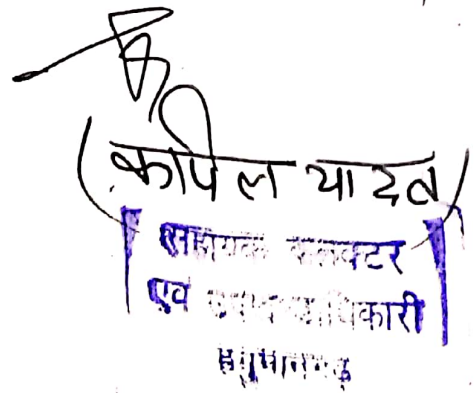 (कपिल यादव)
सहायक कलक्टर
एवं उपखण्ड अधिकारी
हनुमानगढ़